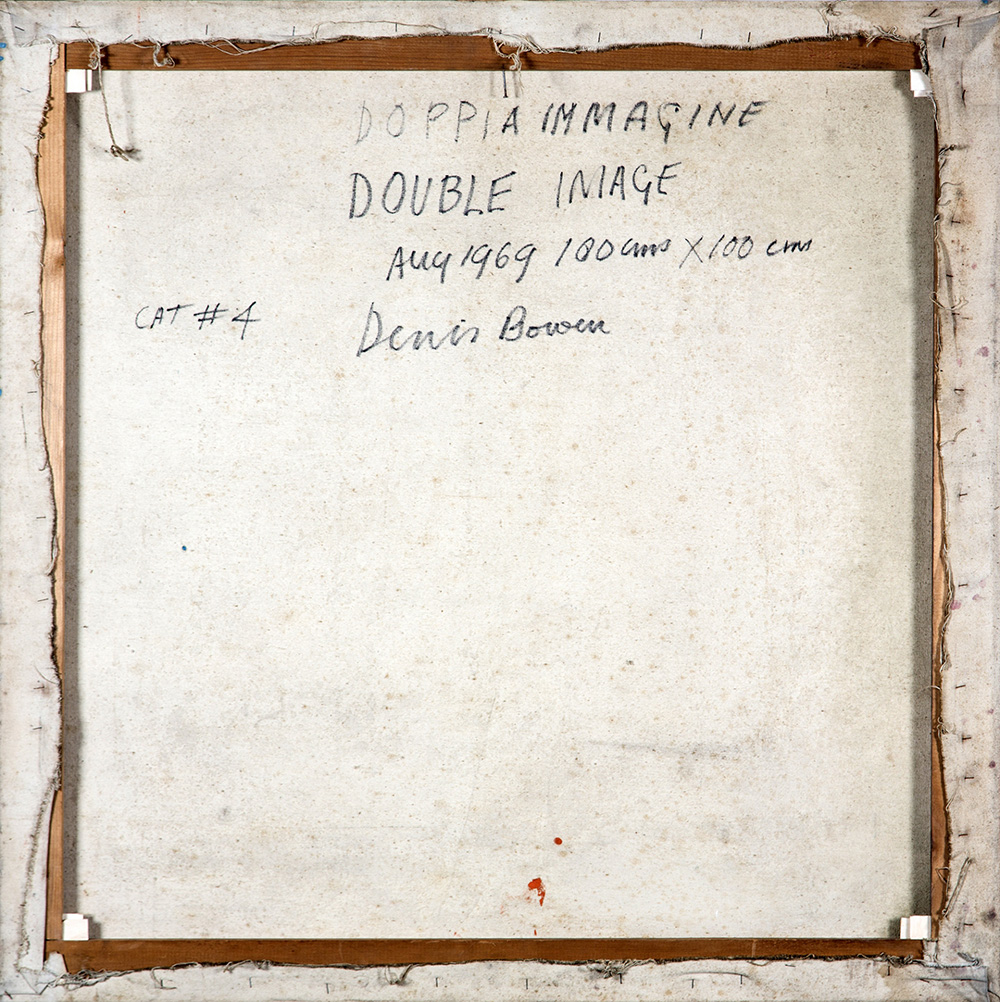 DOPPIA IMMAGINE
DOUBLE IMAGE
Aug 1969 100 cms X 100 cms
CAT # 4
Denis Bowen